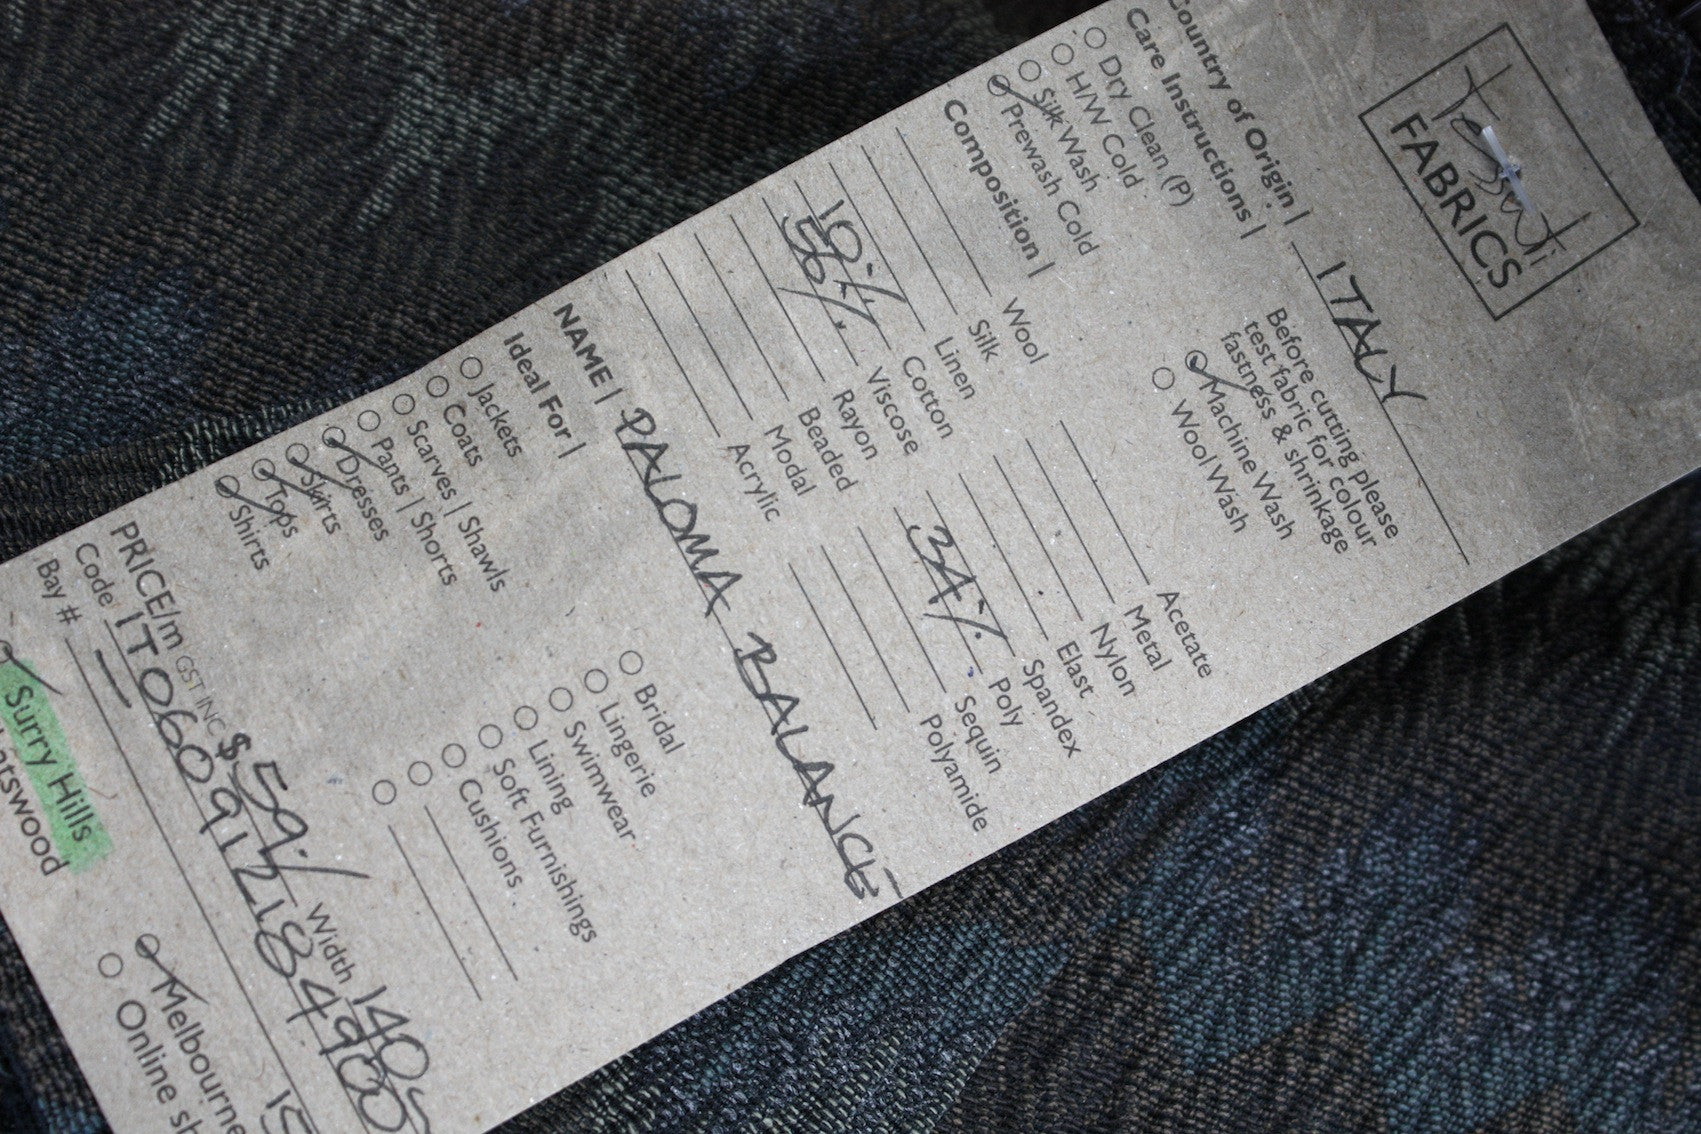 Tessuti
FABRICS
Country of Origin | ITALY
Care Instructions |
Before cutting please
test fabric for colour
fastness & shrinkage
Dry Clean (P)
H/W Cold
Silk Wash
Prewash Cold
Machine Wash
Wool Wash
Composition |
Wool
Silk
Linen
10% Cotton
56% Viscose
Rayon
Beaded
Modal
Acrylic
Acetate
Metal
Nylon
Elast
Spandex
34% Poly
Sequin
Polyamide
NAME | PALOMA BALANCE
Ideal For |
Jackets
Coats
Scarves | Shawls
Pants | Shorts
Dresses
Skirts
Tops
Shirts
Bridal
Lingerie
Swimwear
Lining
Soft Furnishings
Cushions
PRICE/m GST INC $59 Width 140
Code IT060912184900
Bay # —
Surry Hills
Melbourne
Online